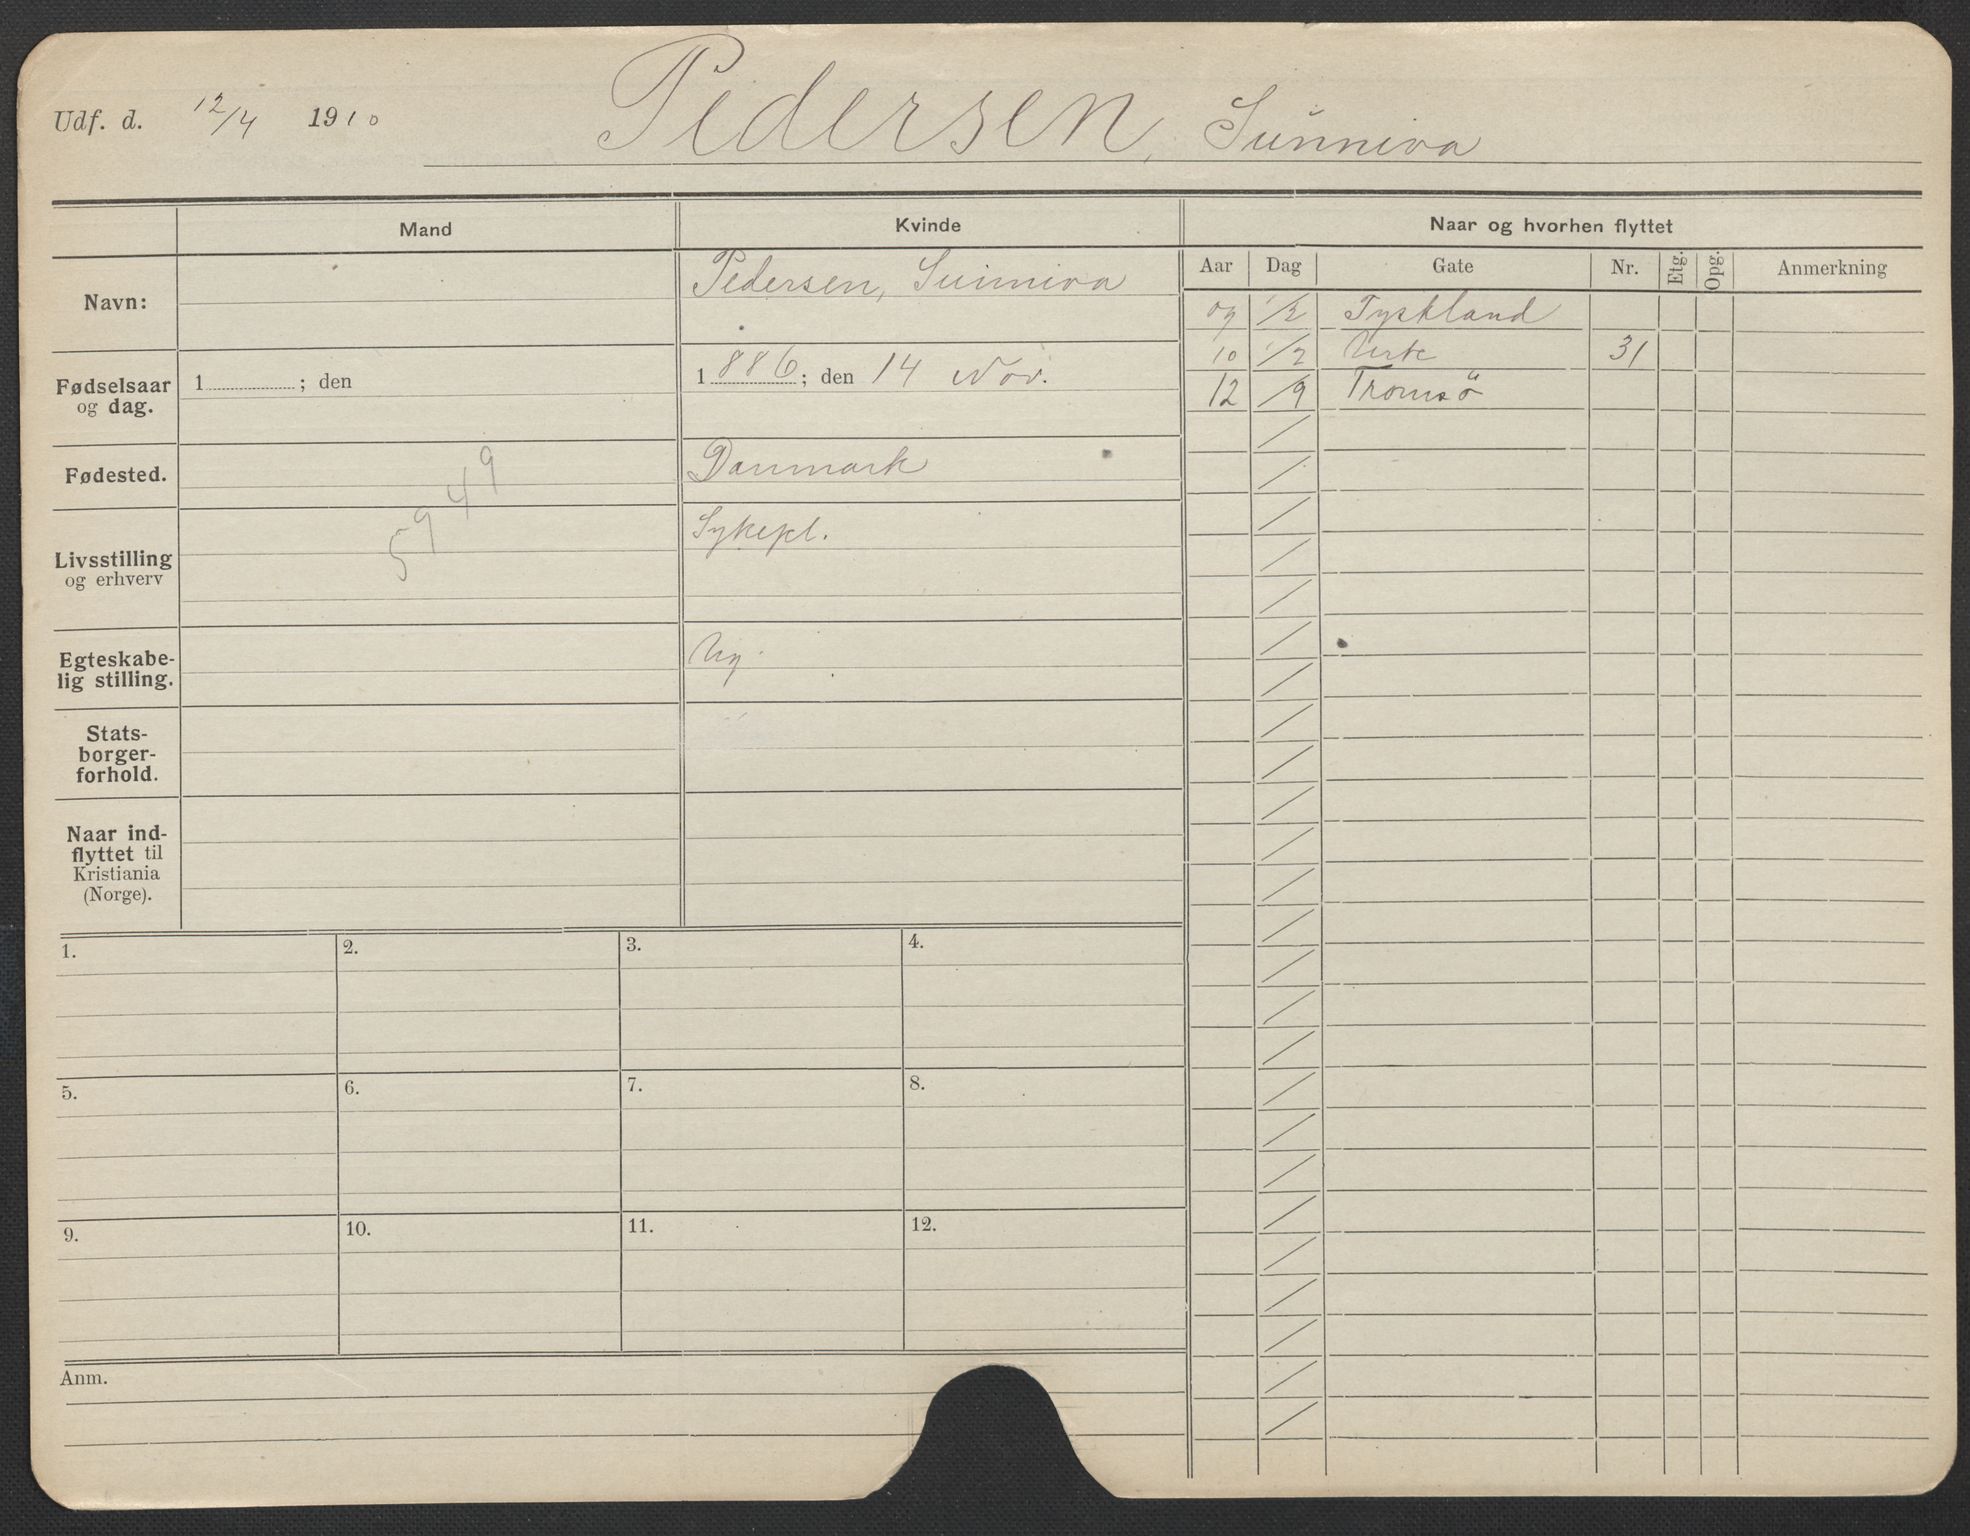 Udf. d. 12/4 1910 Pedersen, Sunniva
Mand Kvinde Naar og hvorhen flyttet
Aar Dag Gate Nr. Etg. Opg. Anmerkning
Navn: Pedersen, Sunniva
09 1/2 Tyskland
10 1/2 31
12 /9 Tromsö
Fødselsaar og dag. 1 ; den 1886; den 14 Nov.
Fødested. Danmark
5949
Livsstilling og erhverv Sykepl.
Egteskabe-
lig stilling. Ug.
Stats-
borger-
forhold.
Naar ind-
flyttet til
Kristiania
(Norge).
1. 2. 3. 4.
5. 6. 7. 8.
9. 10. 11. 12.
Anm.